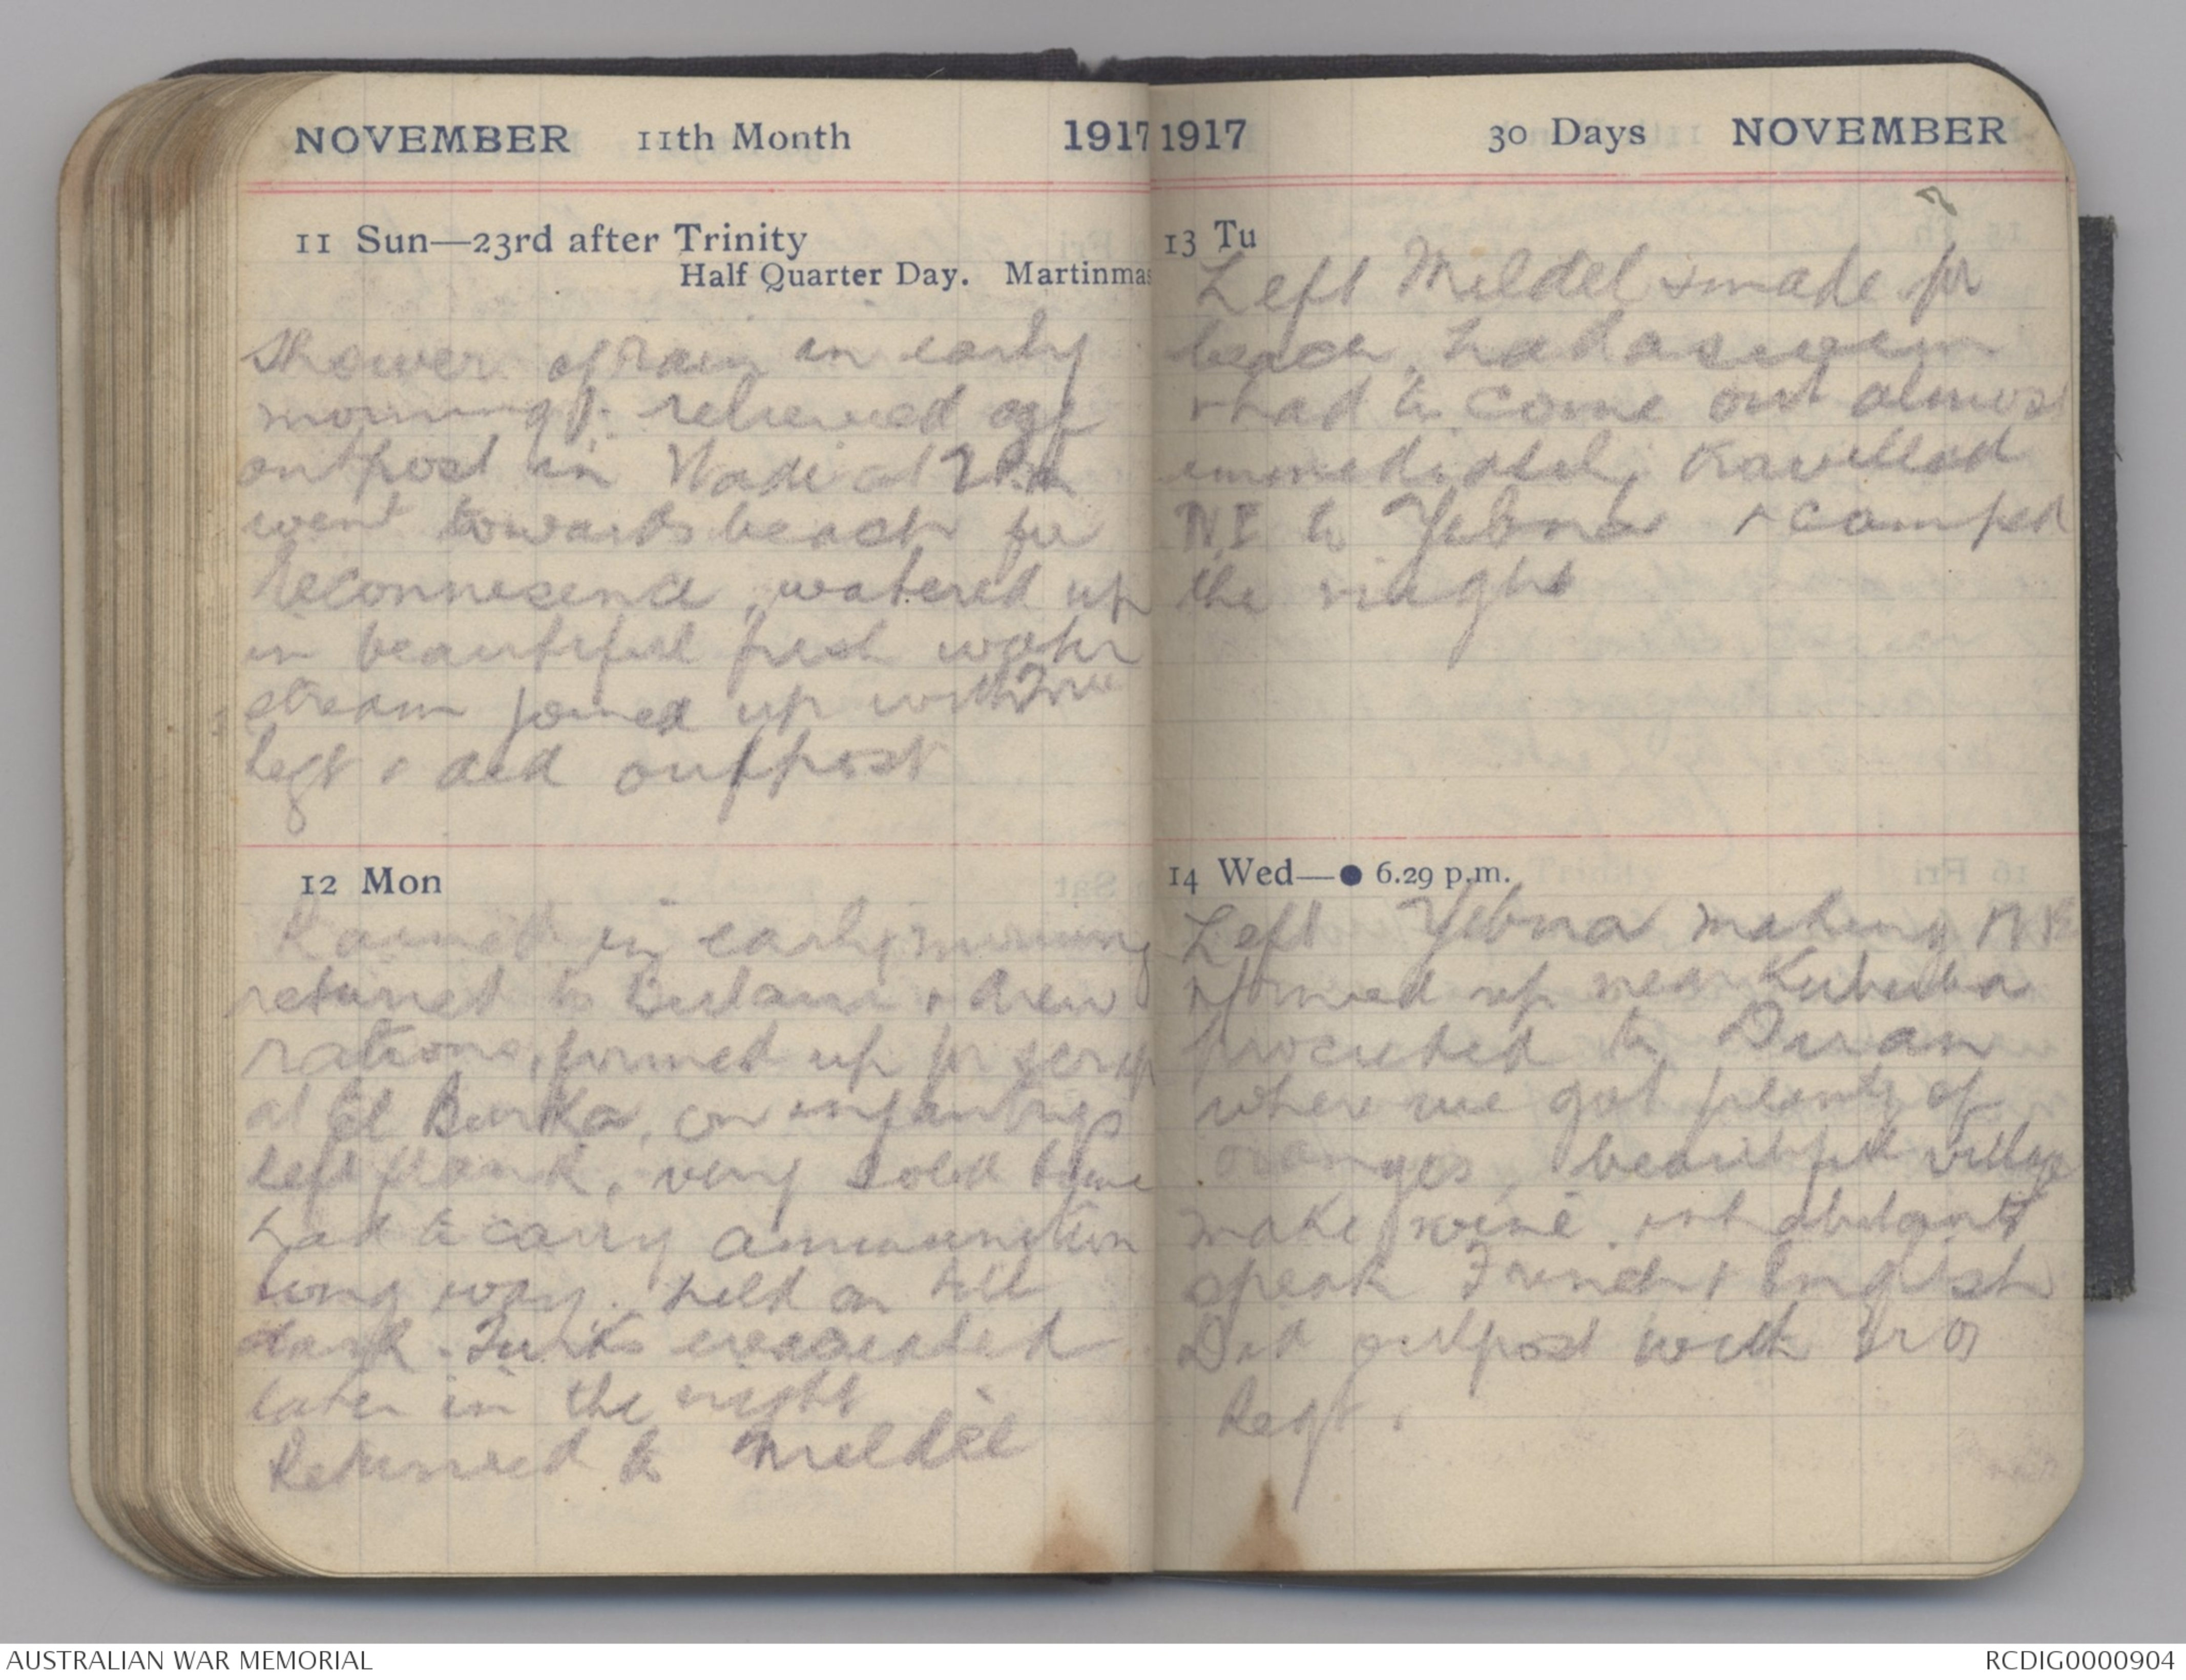 NOVEMBER 11th Month 1917
11 Sun—23rd after Trinity
Half Quarter Day. Martinmas
Shower of rain in early
morning. relieved off
outpost in Wadi at
went towards beach for
reconnesence, watered up
in beautiful fresh water
stream joined up with
Regt & did outpost
12 Mon
Rained in early morning
returned to & drew
rations, formed up for scrap
at El Burka, on infantrys
left flank, very solid time
had to carry ammunition
long way. held on till
dark. Turks evacuated
later in the night
Returned to Mildel
1917 30 Days NOVEMBER
13 Tu
Left Mildel & made for
beach, had a swim
& had to come out almost
immediately, travelled
N.E to Yebna & camped
the night
14 Wed—● 6.29 p.m.
Left Yebna making NE
& formed up near Kubeba
proceeded to Duran
where we got plenty of
oranges, beautiful village
make wine. inhabitants
speak French & English
Did outpost with
Regt.
AUSTRALIAN WAR MEMORIAL
RCDIG0000904